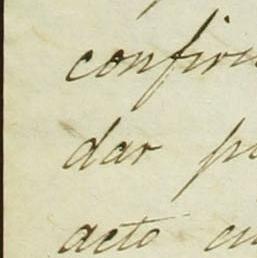 confir
dar p
acto